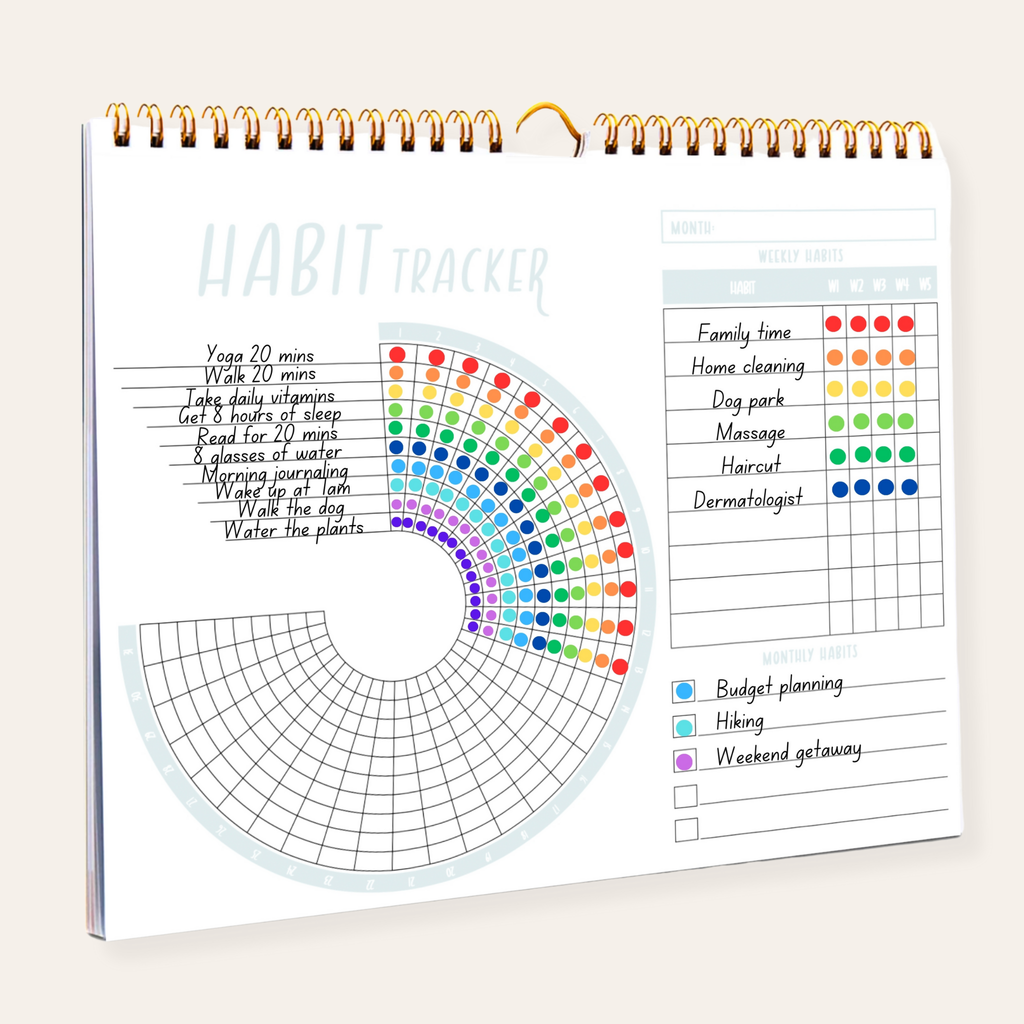 HABIT TRACKER
MONTH:
WEEKLY HABITS
HABIT W1 W2 W3 W4 W5
Family time
Home cleaning
Dog park
Massage
Haircut
Dermatologist
MONTHLY HABITS
Budget planning
Hiking
Weekend getaway
Yoga 20 mins
Walk 20 mins
Take daily vitamins
Get 8 hours of sleep
Read for 20 mins
8 glasses of water
Morning journaling
Wake up at 1am
Walk the dog
Water the plants
1
2
3
4